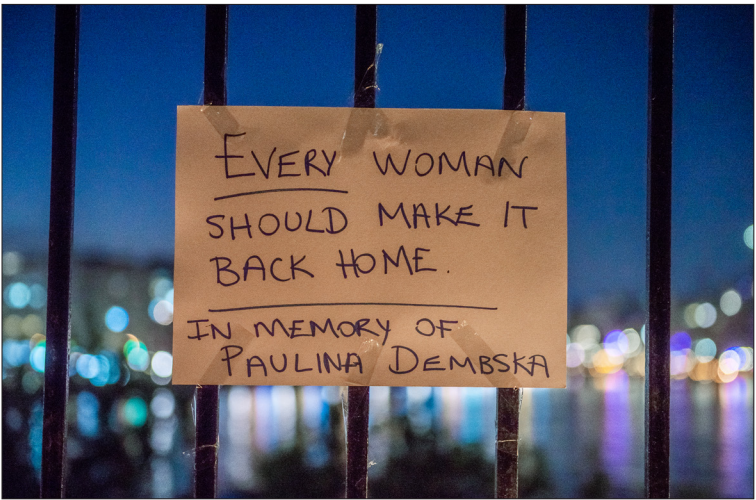 EVERY WOMAN
SHOULD MAKE IT
BACK HOME.
IN MEMORY OF
PAULINA DEMBSKA